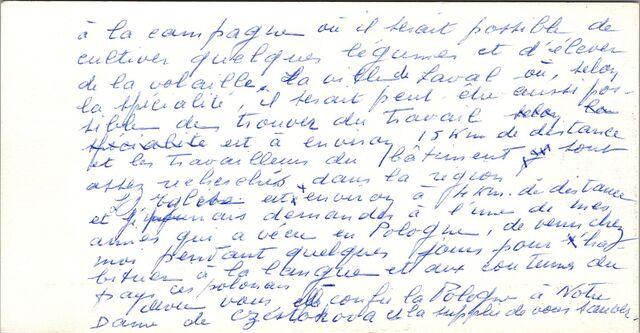 à la campagne où il serait possible de
cultiver quelques légumes et d'élever
de la volaille. La ville de Laval où, selon
la spécialité, il serait peut être aussi pos-
sible de trouver du travail selon la
spécialité est à environ 15 Km de distance
et les travailleurs du bâtiment sont
assez recherchés dans la region
L'Eglise est environ à 4 km. de distance
et je demandes à l'une de mes
amies qui a vécu en Pologne, de venir chez
moi pendant quelques jours pour habi-
bituer à la langue et aux coutumes du
pays ces polonais
vous confie la Pologne à Notre
Dame de Czestokova et la supplie de vous sauver